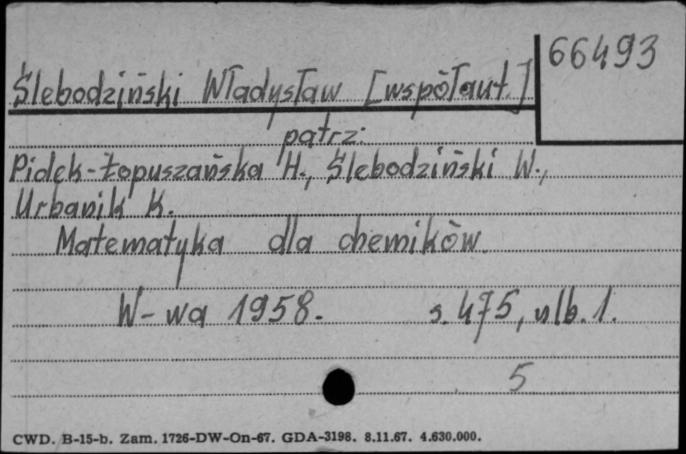 66493
Ślebodziński Władysław [współaut.]
patrz:
Pidek-Łopuszańska H., Ślebodziński W.,
Urbanik K.
Matematyka dla chemików.
W-wa 1958. s. 475, nlb. 1.
5
CWD. B-15-b. Zam. 1726-DW-On-67. GDA-3198. 8.11.67. 4.630.000.